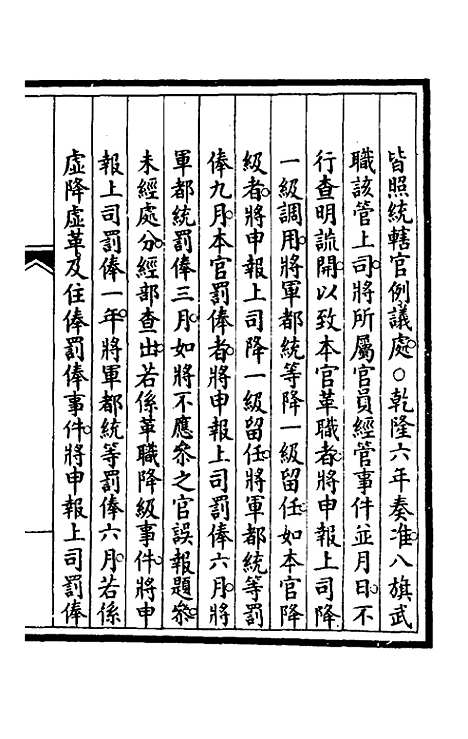 皆照統轄官例議處○乾隆六年奏准八旗武
職該管上司將所屬官員經管事件並月日不
行查明謊開以致本官革職者將申報上司降
一級調用將軍都統等降一級留任如本官降
級者將申報上司降一級留任將軍都統等罰
俸九月本官罰俸者將申報上司罰俸六月將
軍都統罰俸三月如將不應叅之官誤報題叅
未經處分經部查出若係革職降級事件將申
報上司罰俸一年將軍都統等罰俸六月若係
虛降虛革及住俸罰俸事件將申報上司罰俸